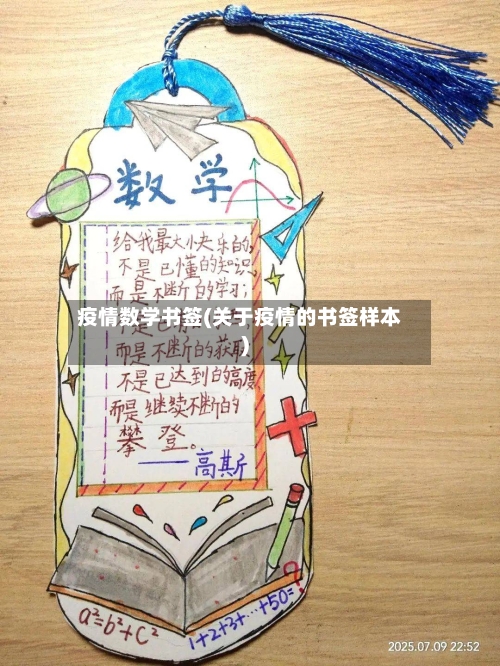 数学
给我最大快乐的,
不是已懂的知识,
而是不断的学习;
疫情数学书签(关于疫情的书签样本
)
而是不断的获取
不是已达到的高度
而是继续不断的
攀登。
——高斯
a²=b²+c²
1+2+3+…+50=?
2025.07.09 22:52